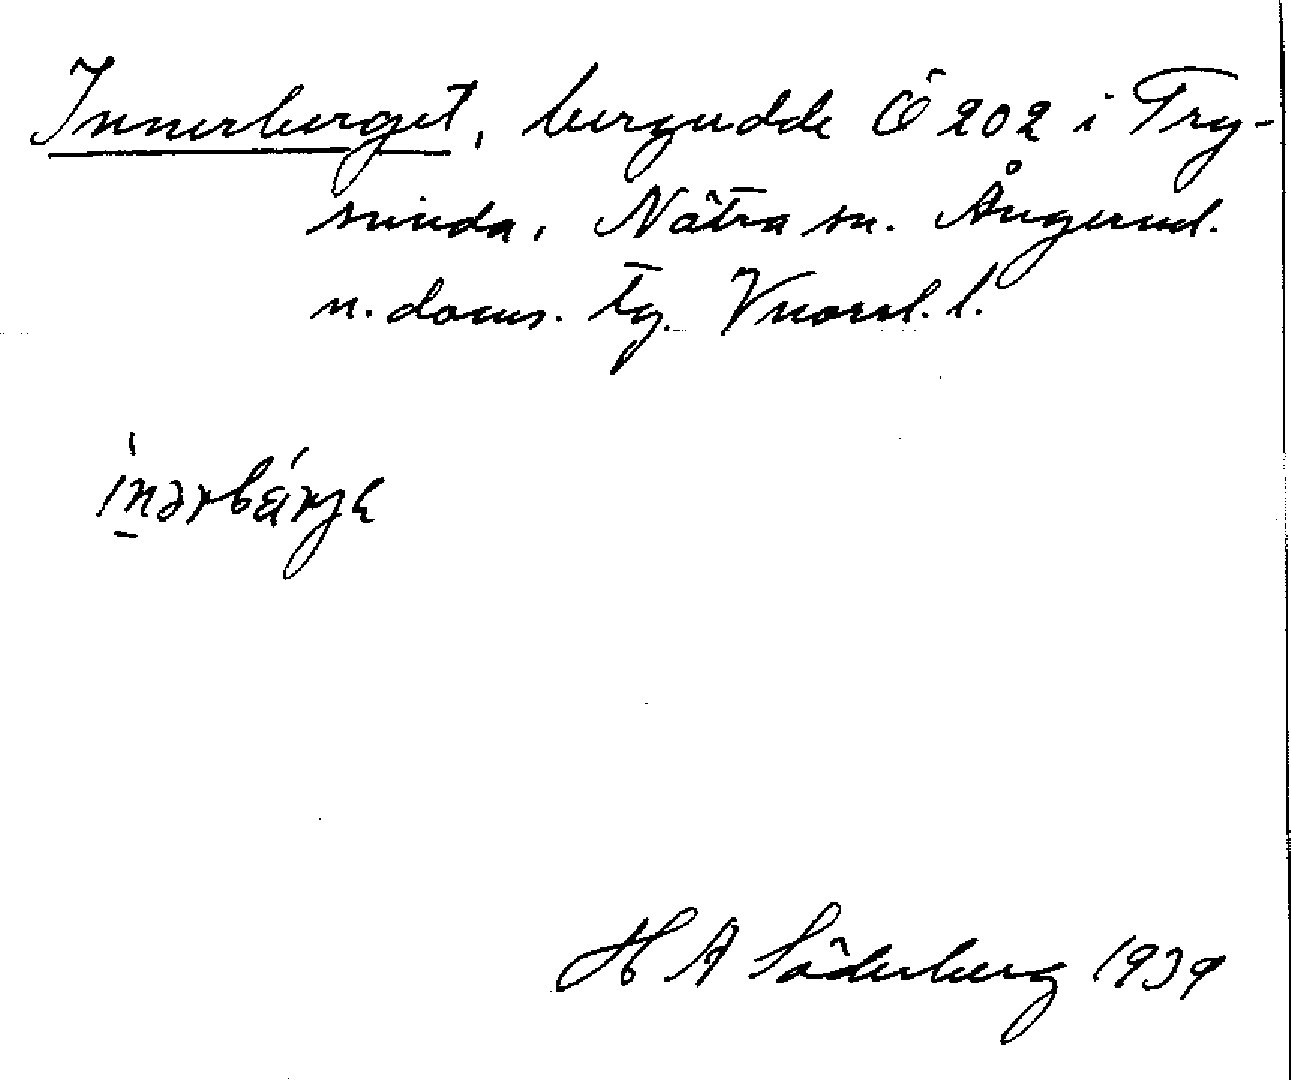 Innerberget, bergudde Ö 202 i Try-
sunda, Nätra sn. Ångerml.
n. Docus. Tg. Vnorrl. l.
H A Söderberg 1939